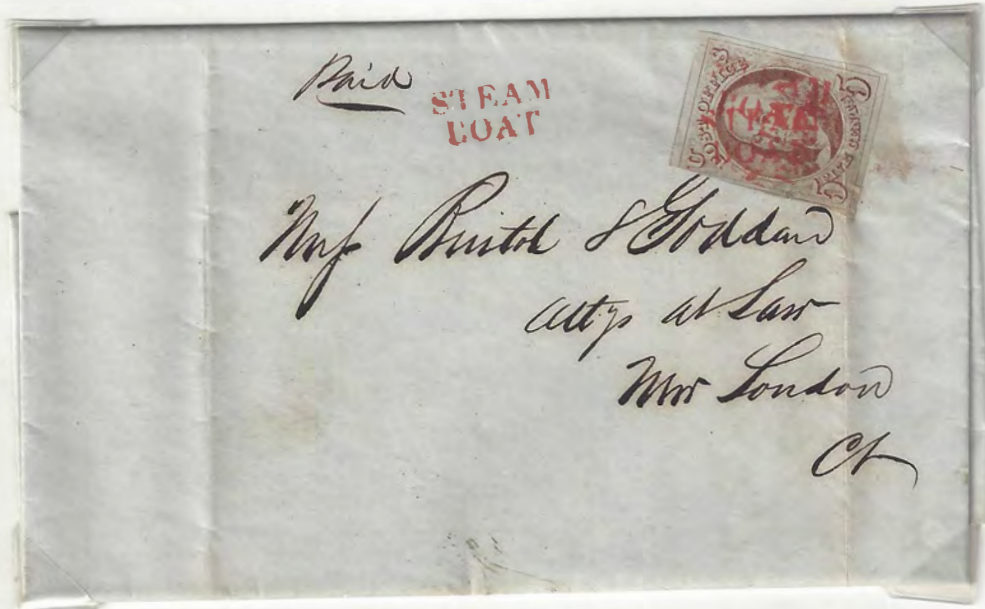 Paid
STEAM
BOAT
POST OFFICE
FIVE CENTS
5 5
Messrs Bristol & Goddard
Attys at Law
New London
Ct